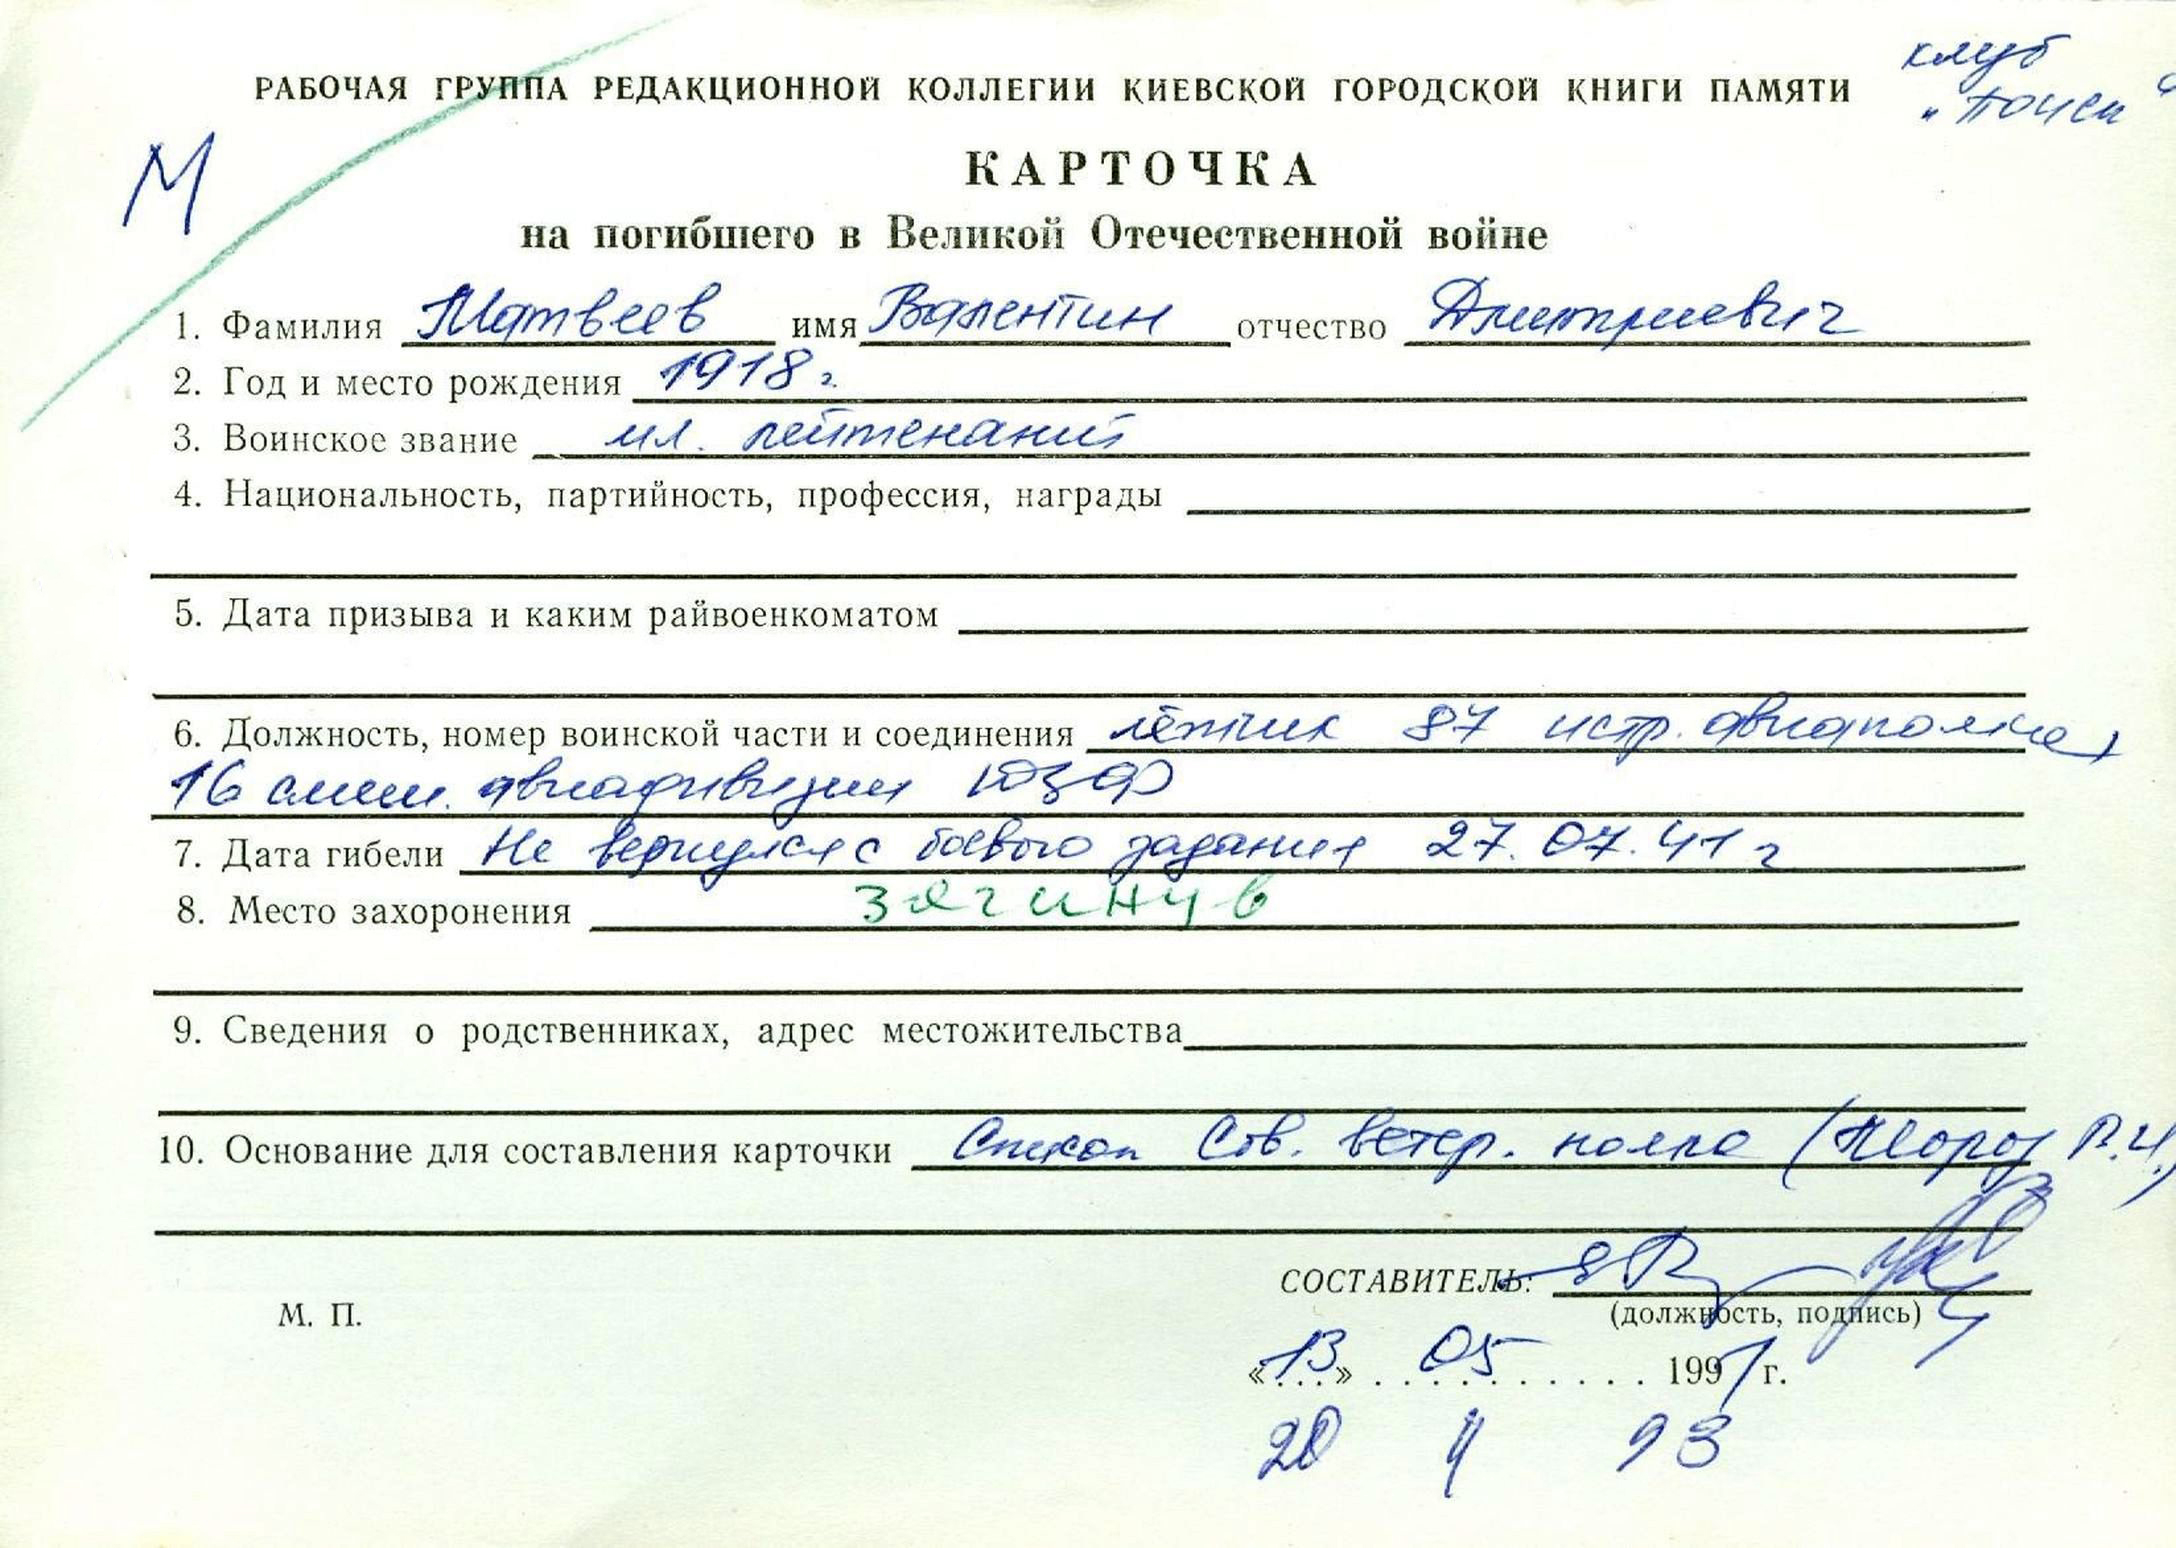 клуб
РАБОЧАЯ ГРУППА РЕДАКЦИОННОЙ КОЛЛЕГИИ КИЕВСКОЙ ГОРОДСКОЙ КНИГИ ПАМЯТИ
"Поиск"
М
КАРТОЧКА
на погибшего в Великой Отечественной войне
1. Фамилия Матвеев имя Валентин отчество Дмитриевич
2. Год и место рождения 1918 г.
3. Воинское звание мл. лейтенант
4. Национальность, партийность, профессия, награды
5. Дата призыва и каким райвоенкоматом
6. Должность, номер воинской части и соединения лётчик 87 истр. авиаполка,
16 смеш. авиадивизии ЮЗФ
7. Дата гибели Не вернулся с боевого задания 27.07.41 г
8. Место захоронения загинув
9. Сведения о родственниках, адрес местожительства
10. Основание для составления карточки Список Сов. ветер. полка (Мороз
СОСТАВИТЕЛЬ:
М. П.
(должность, подпись)
«13» 05 1991 г.
20 4 93